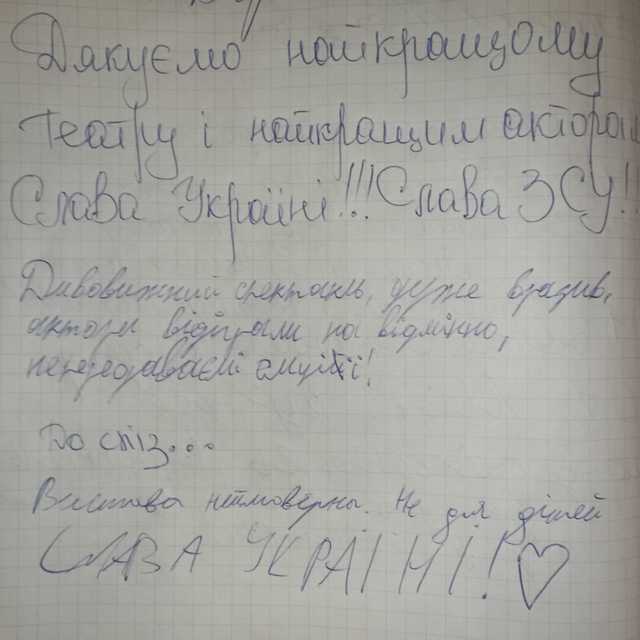 Дякуємо найкращому
театру і найкращим акторам
Слава Україні!!! Слава ЗСУ!!
Дивовижний спектакль, дуже вразив,
актори відіграли на відмінно,
непередаваємі емоції!
До сліз...
Вистава неймовірна. Не для дітей
СЛАВА УКРАЇНІ!